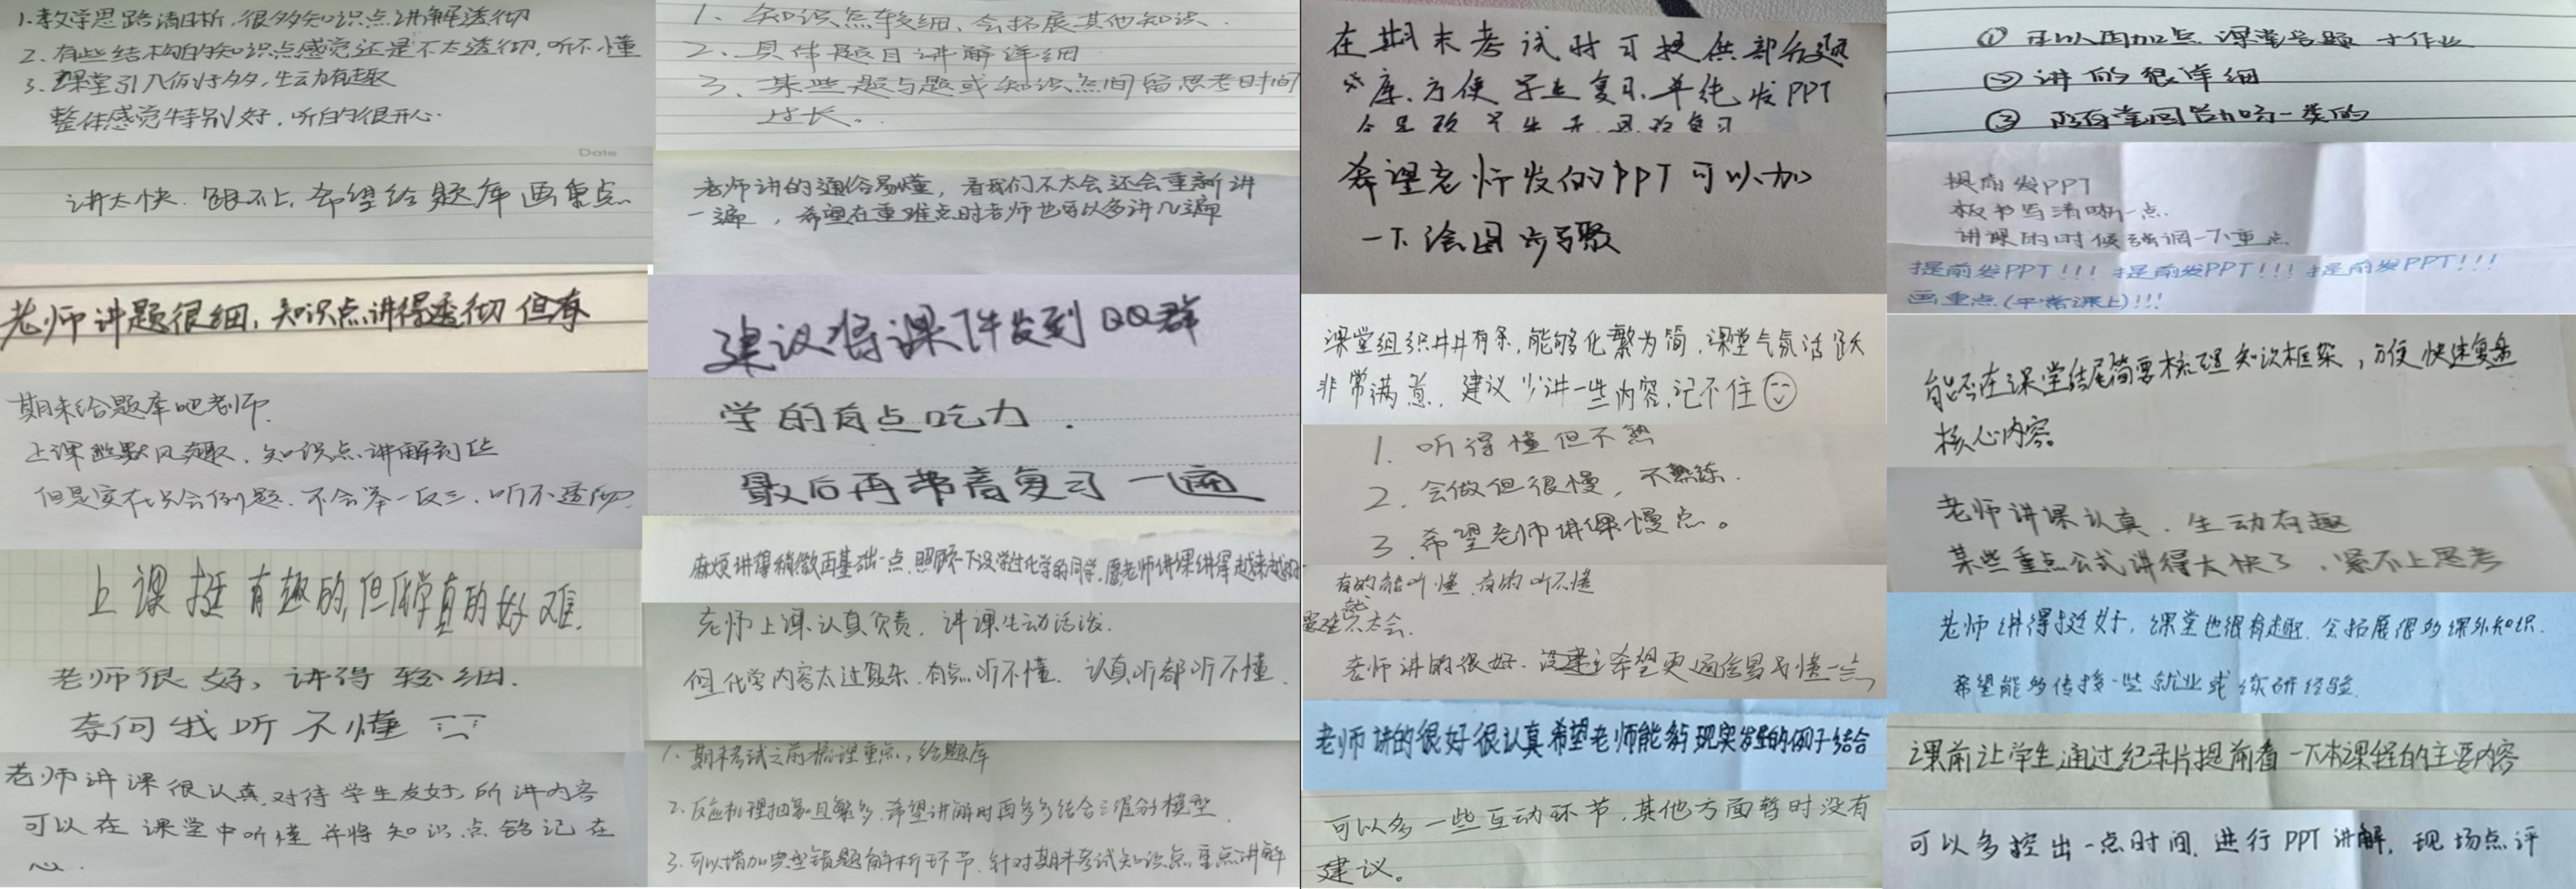 1.教学思路清晰,很多知识点讲解透彻
2.有些结构的知识点感觉还是不太透彻,听不懂
3.课堂引入例子多,生动有趣
整体感觉特别好,听的很开心.
Date
讲太快.跟不上,希望给题库画重点.
老师讲题很细,知识点讲得透彻但有
期末给题库吧老师.
上课幽默风趣.知识点讲解到位
但是实在只会例题.不会举一反三.听不透彻.
上课挺有趣的,但化学真的好难.
老师很好,讲得较细.
奈何我听不懂
老师讲课很认真,对待学生友好,所讲内容
可以在课堂中听懂并将知识点铭记在
心.
1、知识点较细、会拓展其他知识.
2、具体题目讲解详细
3、某些题与题或知识点间留思考时间
过长。
老师讲的通俗易懂,看我们不太会还会重新讲
一遍,希望在重难点时老师也可以多讲几遍
建议将课件发到QQ群
学的有点吃力.
最后再带着复习一遍
麻烦讲得稍微再基础一点,照顾一下没学过化学的同学,愿老师讲课讲得越来越好
老师上课认真负责.讲课生动活泼.
但化学内容太过复杂.有点听不懂.认真听都听不懂.
1.期末考试之前梳理重点,给题库
2.反应机理抽象且繁多,希望讲解时再多多结合三维分子模型.
3.可以增加典型错题解析环节.针对期末考试知识点重点讲解
在期末考试时可提供部分题
库.方便学生复习.单纯发PPT
希望老师发的PPT可以加
一下绘图步骤
课堂组织井井有条,能够化繁为简,课堂气氛活跃
非常满意.建议少讲一些内容,记不住
1.听得懂但不熟
2.会做但很慢,不熟练.
3.希望老师讲课慢点。
有的能听懂,有的听不懂
不太会.
老师讲的很好.希望更通俗易懂一点
老师讲的很好很认真希望老师能多与现实发生的例子结合
可以多一些互动环节,其他方面暂时没有
建议。
① 可以再加点 课堂答题 作业
② 讲的很详细
③
提前发PPT
板书写清晰一点.
讲课的时候强调一下重点
提前发PPT!!! 提前发PPT!!! 提前发PPT!!!
画重点(平常课上)!!!
能否在课堂结尾简要梳理知识框架,方便快速复盘
核心内容。
老师讲课认真.生动有趣
某些重点公式讲得太快了,跟不上思考
老师讲得挺好,课堂也很有趣.会拓展很多课外知识.
希望能多传授一些就业或读研经验.
课前让学生通过纪录片提前看一下本课程的主要内容
可以多挖出一点时间,进行PPT讲解,现场点评